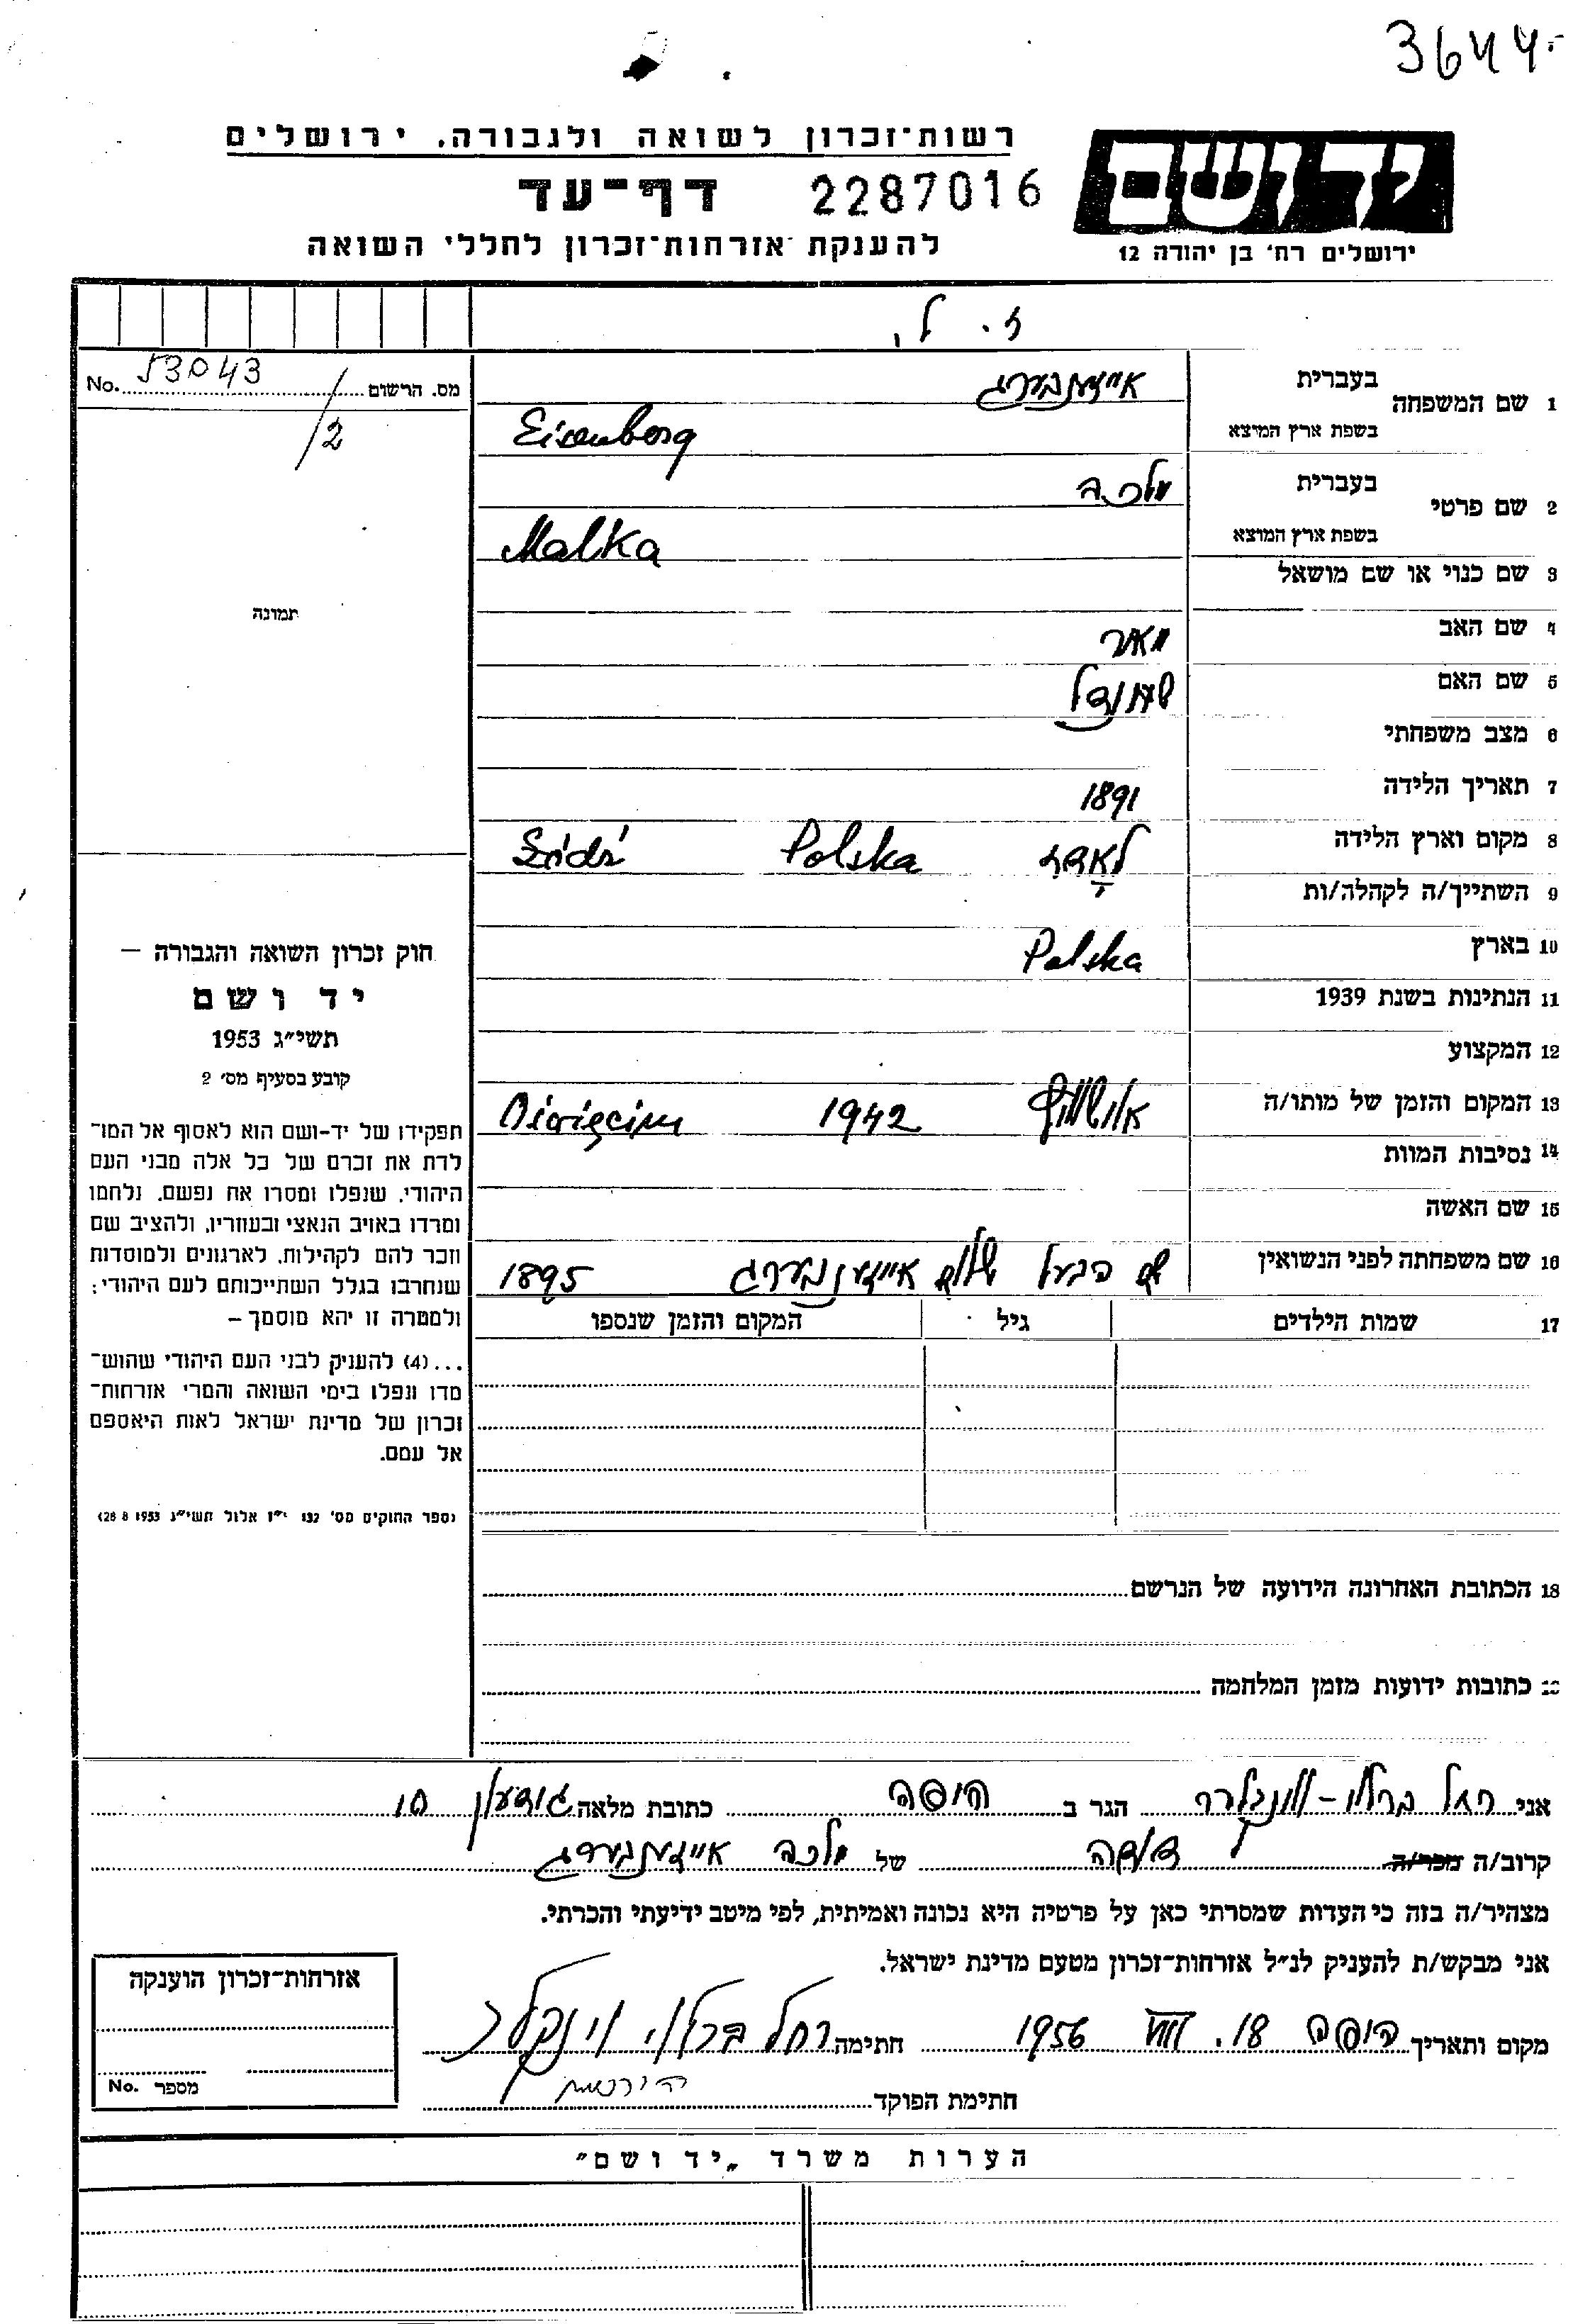 3644-
רשות־זכרון לשואה ולגבורה. ירושלים
ידושם
דף־עד 2287016
להענקת אזרחות־זכרון לחללי השואה
ירושלים רח' בן יהודה 12
ז. ל.
מס. הרשום No. 53043 /2
1 שם המשפחה
בעברית אייזענבערג
בשפת ארץ המוצא Eisenberg
2 שם פרטי
בעברית מלכה
בשפת ארץ המוצא Malka
3 שם כנוי או שם מושאל
תמונה
4 שם האב מאיר
5 שם האם שיינדל
6 מצב משפחתי
7 תאריך הלידה 1891
8 מקום וארץ הלידה לאָדזש Polska Łódź
9 השתייך/ה לקהלה/ות
10 בארץ Polska
11 הנתינות בשנת 1939
12 המקצוע
13 המקום והזמן של מותו/ה 1942 Oświęcim
14 נסיבות המוות
15 שם האשה
16 שם משפחתה לפני הנשואין שם הבעל שלום אייזענבערג 1895
17 שמות הילדים גיל המקום והזמן שנספו
חוק זכרון השואה והגבורה –
יד ושם
תשי״ג 1953
קובע בסעיף מס' 2
תפקידו של יד-ושם הוא לאסוף אל המו־
לדת את זכרם של כל אלה מבני העם
היהודי, שנפלו ומסרו את נפשם, נלחמו
ומרדו באויב הנאצי ובעוזריו, ולהציב שם
וזכר להם לקהילות, לארגונים ולמוסדות
שנחרבו בגלל השתייכותם לעם היהודי;
ולמטרה זו יהא מוסמך –
...(4) להעניק לבני העם היהודי שהוש־
מדו ונפלו בימי השואה והמרי אזרחות־
זכרון של מדינת ישראל לאות היאספם
אל עמם.
(ספר החוקים מס' 132 י״ז אלול תשי״ג 28 8 1953)
18 הכתובת האחרונה הידועה של הנרשם
19 כתובות ידועות מזמן המלחמה
אני רחל הגר ב חיפה כתובת מלאה גדעון 10
קרוב/ה מכר/ה דודה של מלכה אייזענבערג
מצהיר/ה בזה כי העדות שמסרתי כאן על פרטיה היא נכונה ואמיתית, לפי מיטב ידיעתי והכרתי.
אני מבקש/ת להעניק לנ״ל אזרחות־זכרון מטעם מדינת ישראל.
מקום ותאריך חיפה 18. VIII 1956 חתימה רחל
חתימת הפוקד
אזרחות־זכרון הוענקה
מספר No.
הערות משרד „יד ושם״